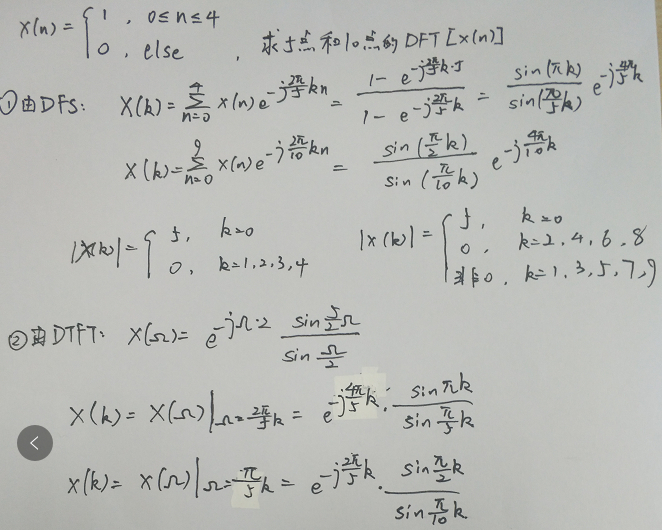 x(n) = { 1 , 0≤n≤4
0 , else , 求5点和10点的DFT[x(n)]
①由DFS: X(k) = Σ_{n=0}^{4} x(n) e^{-j\frac{2π}{5}kn} = \frac{1 - e^{-j\frac{2π}{5}k·5}}{1 - e^{-j\frac{2π}{5}k}} = \frac{sin(πk)}{sin(\frac{π}{5}k)} e^{-j\frac{4π}{5}k}
X(k) = Σ_{n=0}^{9} x(n) e^{-j\frac{2π}{10}kn} = \frac{sin(\frac{π}{2}k)}{sin(\frac{π}{10}k)} e^{-j\frac{4π}{10}k}
|X(k)| = { 5, k=0
0, k=1,2,3,4
|X(k)| = { 5, k=0
0, k=2,4,6,8
非0, k=1,3,5,7,9
②由DTFT: X(Ω) = e^{-jΩ·2} \frac{sin\frac{5}{2}Ω}{sin\frac{Ω}{2}}
X(k) = X(Ω)|_{Ω=\frac{2π}{5}k} = e^{-j\frac{4π}{5}k} · \frac{sinπk}{sin\frac{π}{5}k}
X(k) = X(Ω)|_{Ω=\frac{π}{5}k} = e^{-j\frac{2π}{5}k} · \frac{sin\frac{π}{2}k}{sin\frac{π}{10}k}